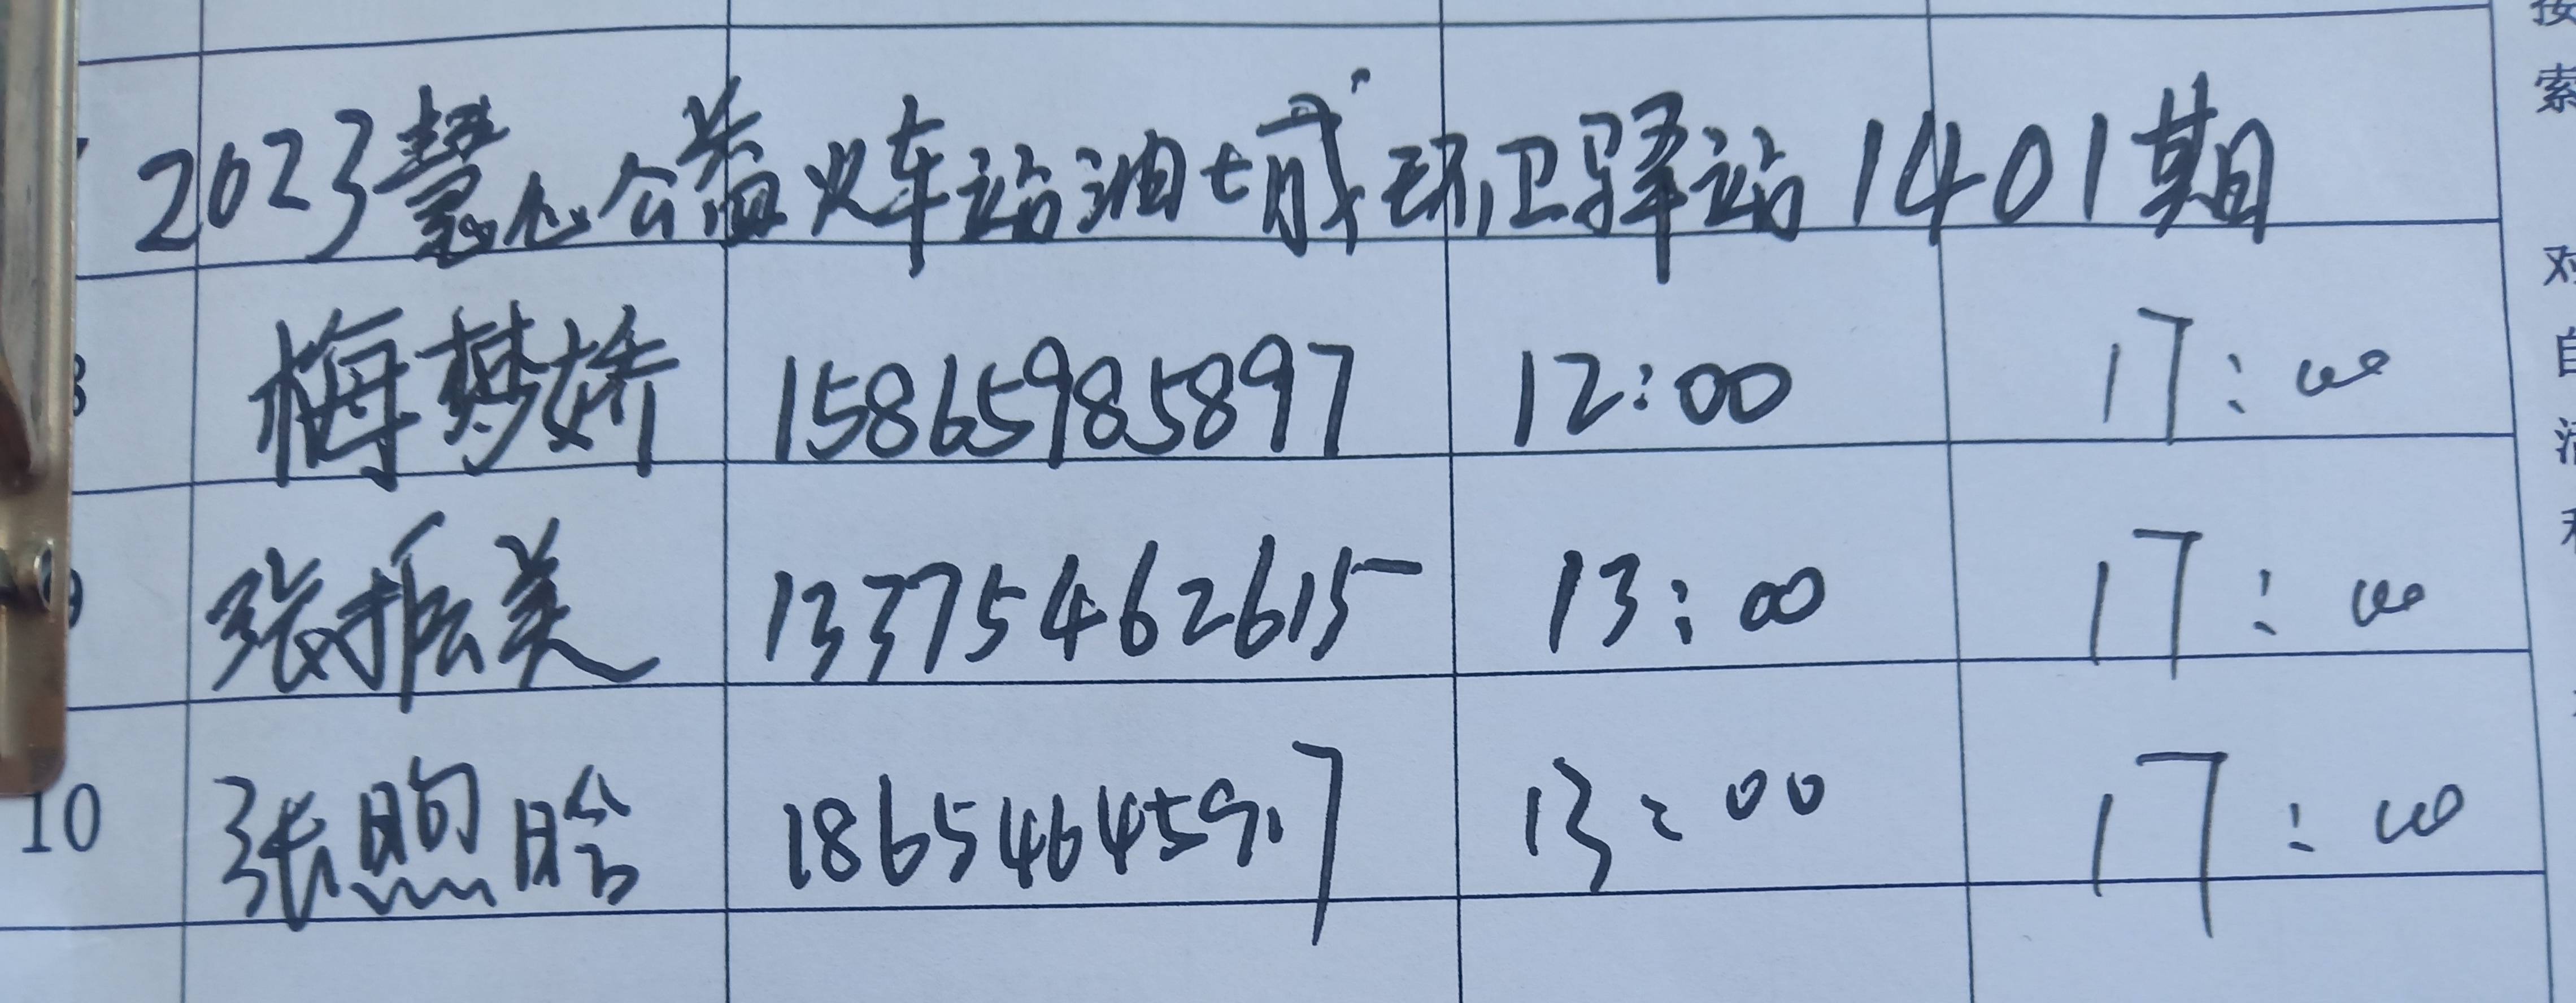 2023慧心公益火车站油城环卫驿站1401期
梅梦娇 15865985897 12:00 17:00
张振美 13375462615 13:00 17:00
10 张煦晗 18654645917 13:00 17:00
索
对